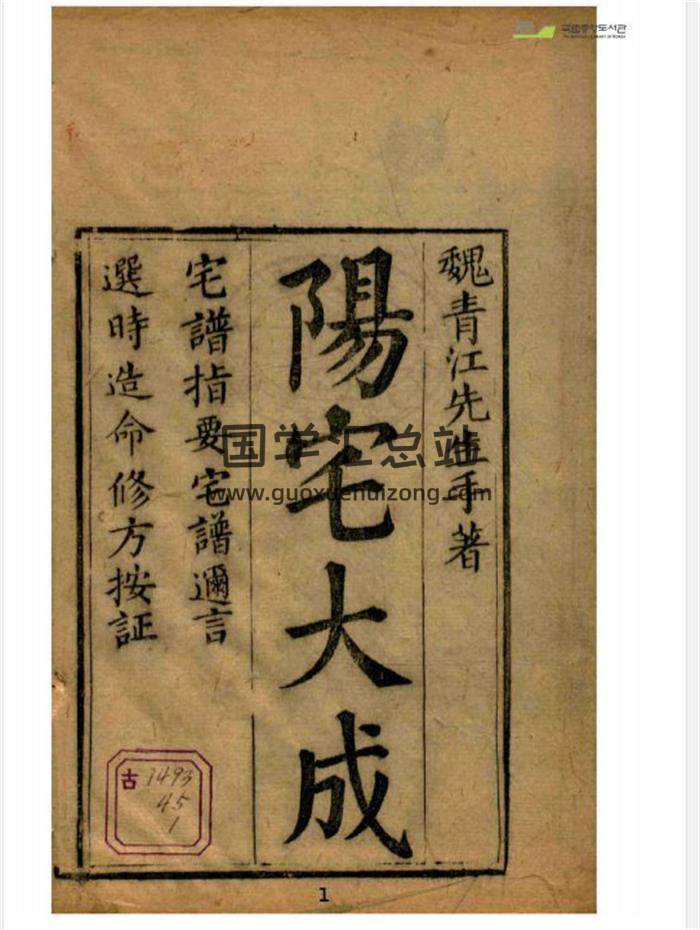 국립중앙도서관
魏青江先生手著
陽宅大成
宅譜指要宅譜邇言
選時造命修方按証
国学汇总站
www.guoxuehuizong.com
古 1493
45
1
1